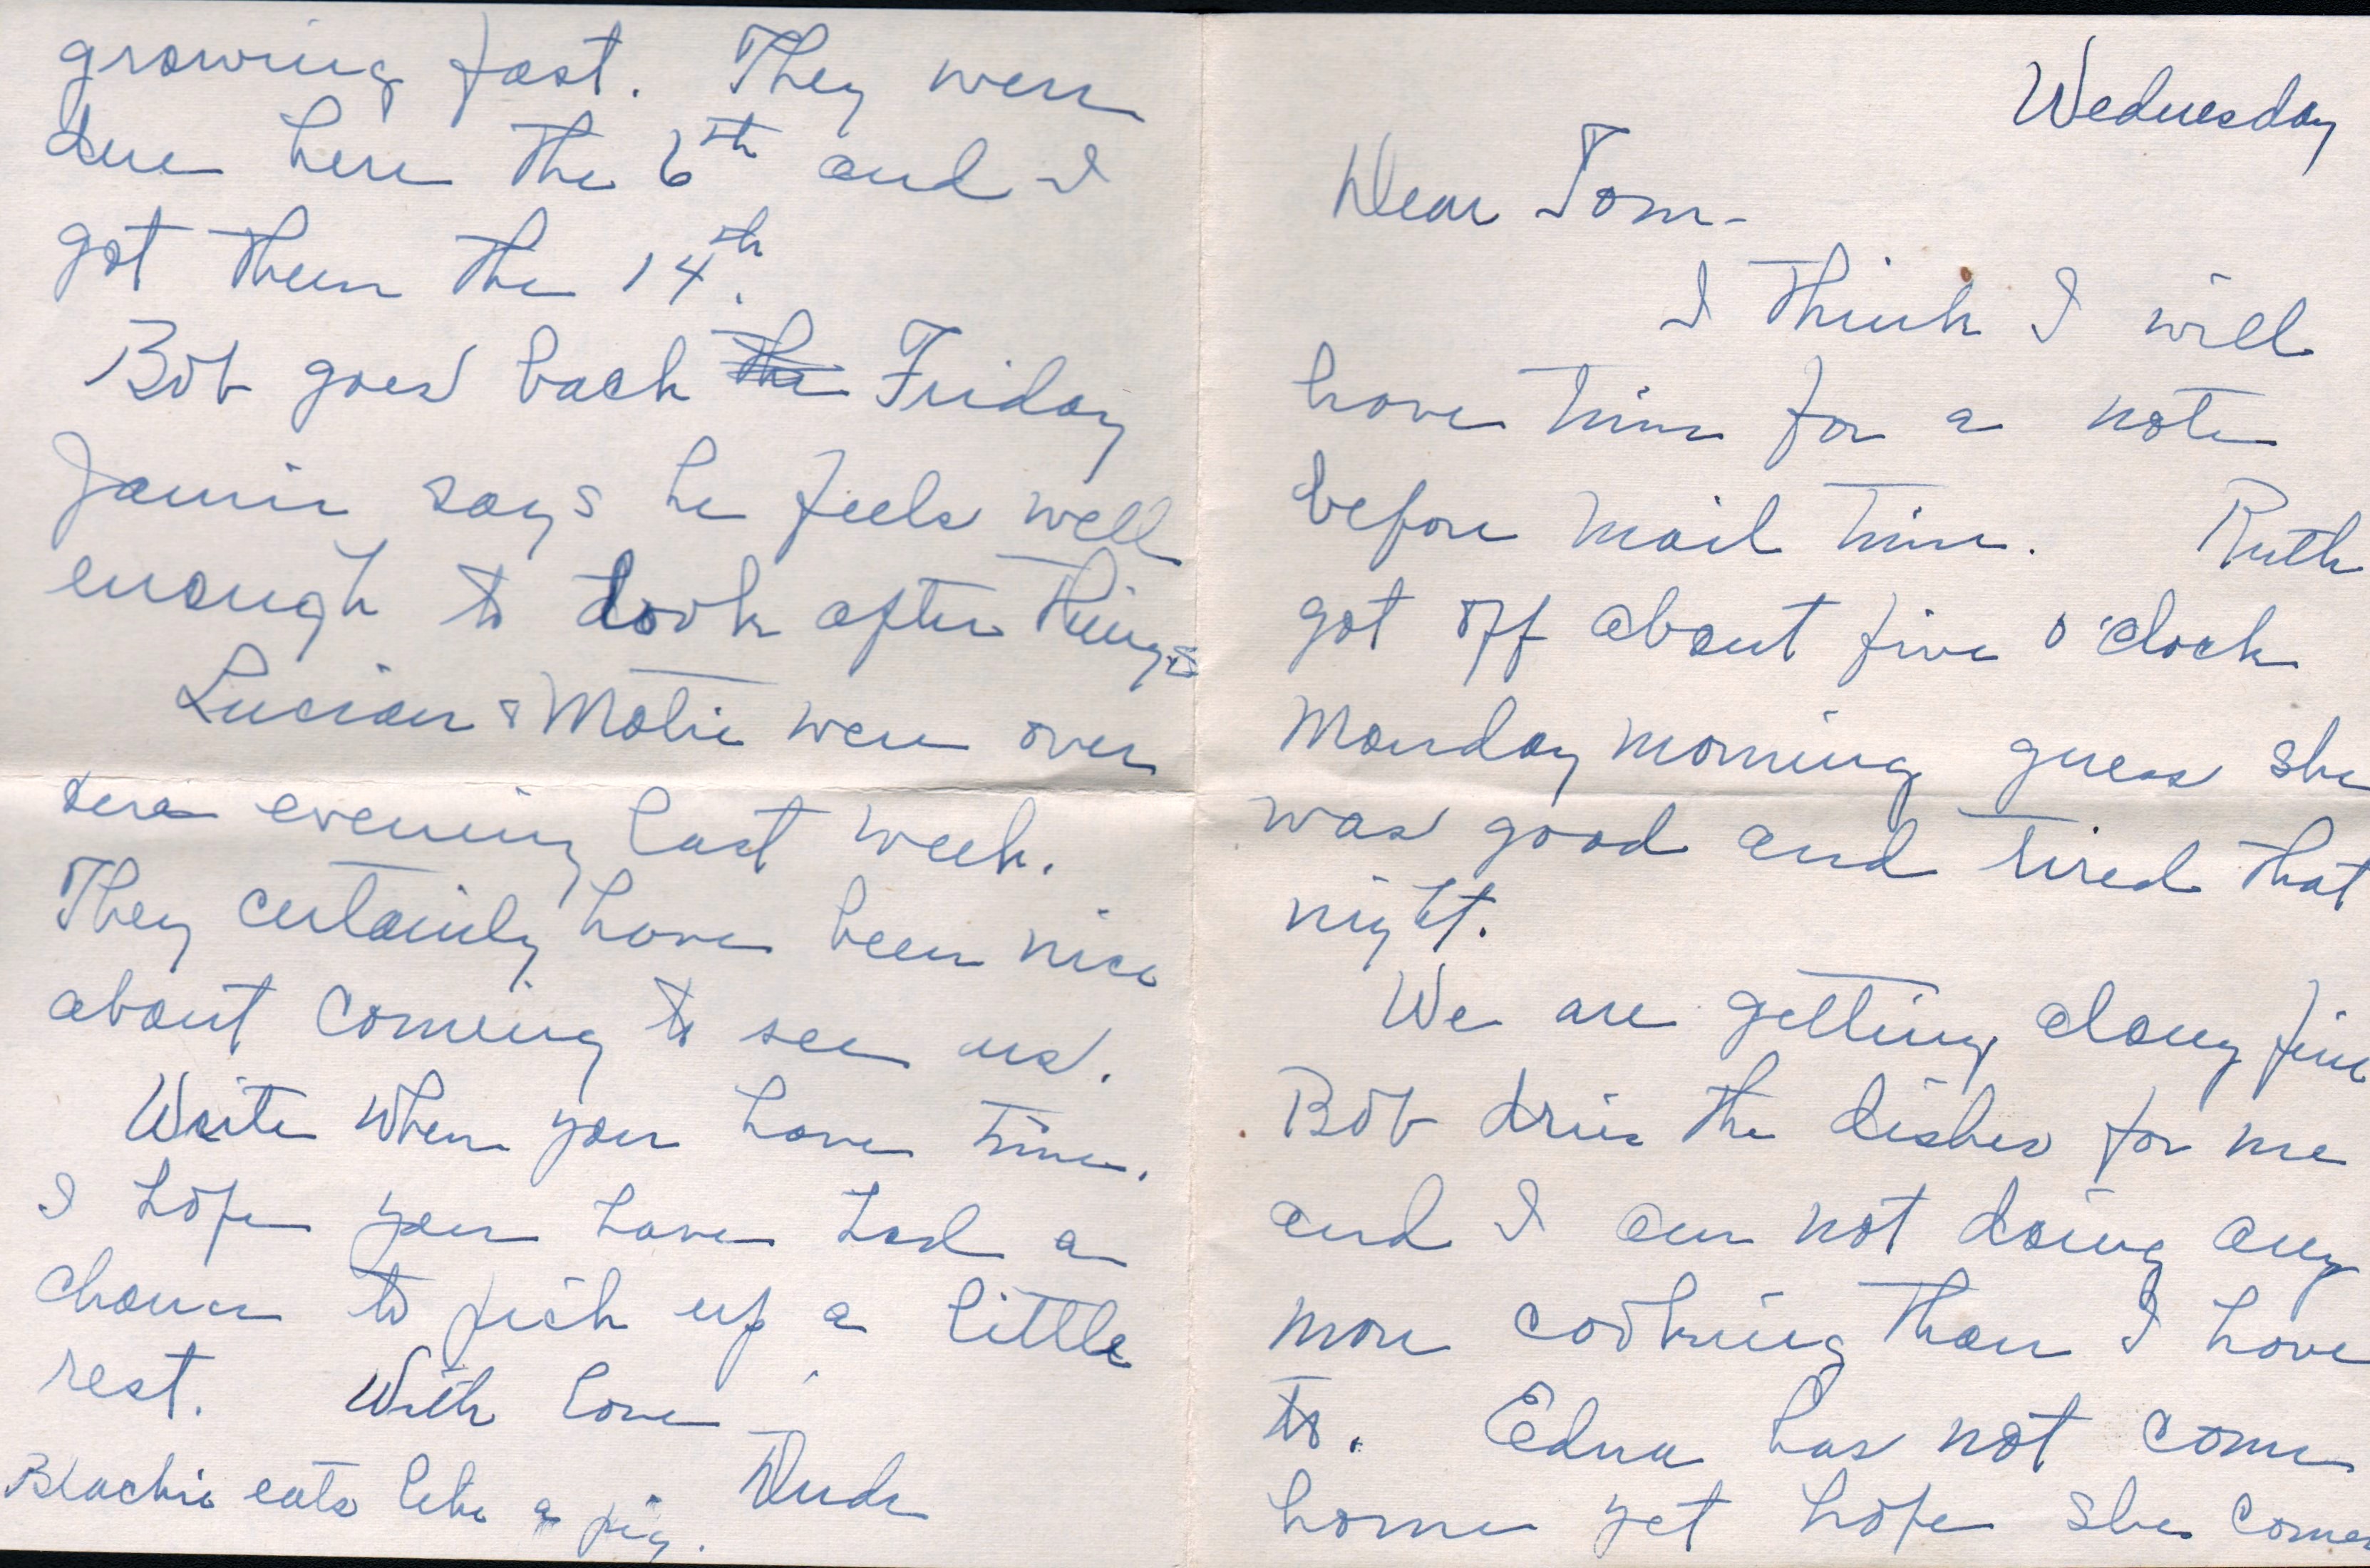 Wednesday
Dear Tom-
I think I will
have time for a note
before mail time. Ruth
got off about five o'clock
Monday morning guess she
was good and tired that
night.
We are getting along fine
Bob dries the dishes for me
and I am not doing any
more cooking than I have
to. Edna has not come
home yet hope she comes
growing fast. They were
due here the 6th and I
got them the 14th.
Bob goes back the Friday
Jamie says he feels well
enough to look after things
Lucian & were over
evening last week.
They certainly have been nice
about coming to see us.
Write when you have time.
I hope you have had a
chance to pick up a little
rest. With love
Dude
Blackie eats like a pig.